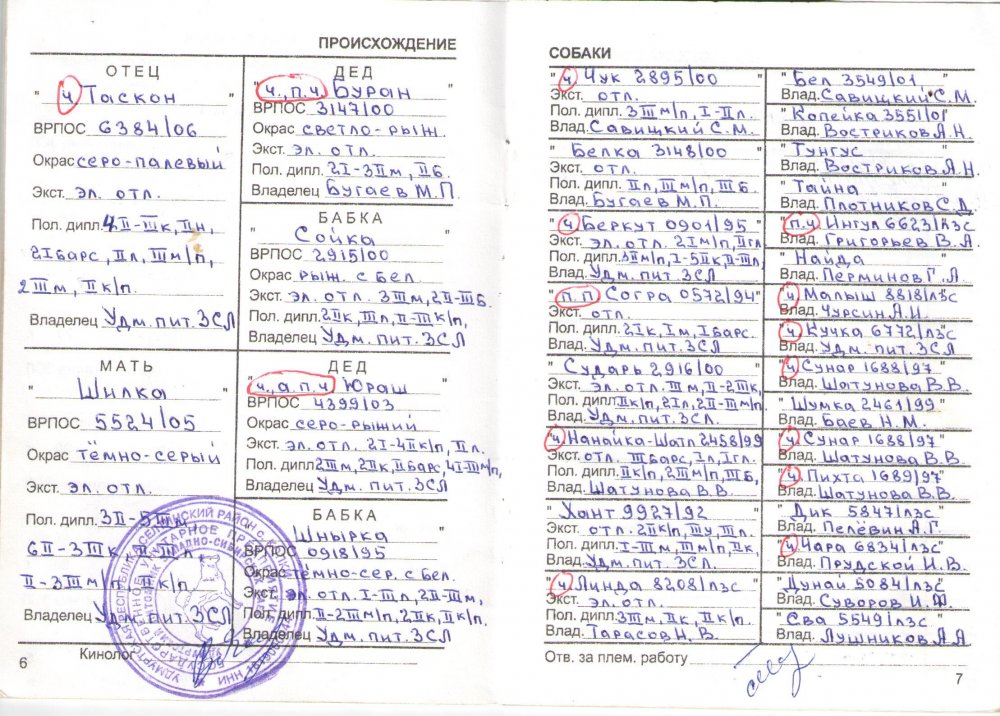 ПРОИСХОЖДЕНИЕ
ОТЕЦ
"ч Таскон "
ВРПОС 6384/06
Окрас серо-палевый
Экст. эл. отл.
Пол. дипл. 4II-IIIк, IIн,
2Iбарс, IIл, IIIм/п,
2IIIм, IIк/п.
Владелец Удм. пит. ЗСЛ
МАТЬ
" Шилка "
ВРПОС 5524/05
Окрас тёмно-серый
Экст. эл. отл.
Пол. дипл. 3II-5IIм
6II-3IIIк,
II-3IIIм/п, IIк/п
Владелец Удм. пит. ЗСЛ
6
Кинолог
ДЕД
"ч.,п.ч Буран "
ВРПОС 3147/00
Окрас светло-рыж.
Экст. эл. отл.
Пол. дипл. 2I-3IIм, IIб.
Владелец Бугаев М.П.
БАБКА
" Сойка "
ВРПОС 2915/00
Окрас рыж. с бел.
Экст. эл. отл. 3IIIм, 2II-IIIб.
Пол. дипл. 2IIк, IIIл, II-IIIк/п,
Владелец Удм. пит. ЗСЛ
ДЕД
"ч.,а.п.ч Юраш "
ВРПОС 4399/03
Окрас серо-рыжий
Экст. эл. отл. 2I-4IIк/п, IIл.
Пол. дипл. 2IIIм, 2IIк, IIбарс, 4I-IIIм/п,
Владелец Удм. пит. ЗСЛ
БАБКА
" Шнырка "
ВРПОС 0918/95
Окрас тёмно-сер. с бел.
Экст. эл. отл. I-IIIл, 2II-IIIм,
Пол. дипл. II-2IIIм/п, 2IIк, IIк/п
Владелец Удм. пит. ЗСЛ
СОБАКИ
"ч Чук 2895/00 "
Экст. отл.
Пол. дипл. 3IIIм/п, I-IIл.
Влад. Савицкий С.М.
" Белка 3148/00 "
Экст. отл.
Пол. дипл. IIл, IIIм/п, IIIб.
Влад. Бугаев М.П.
"ч Беркут 0901/95 "
Экст. эл. отл. 2Iм/п, IIгл.
Пол. дипл. 3IIм/п, I-5IIк, II-IIIл,
Влад. Удм. пит. ЗСЛ
"п.п Согра 0572/94"
Экст. отл.
Пол. дипл. 2IIк, Iм, Iбарс.
Влад. Удм. пит. ЗСЛ
" Сударь 2916/00 "
Экст. эл. отл. IIIм, II-2IIIк,
Пол. дипл. IIк/п, 2Iл, 2II-IIIм/п,
Влад. Удм. пит. ЗСЛ
"ч Нанайка-Шатл 2458/99
Экст. отл. IIIбарс, Iл, Iгл.
Пол. дипл. IIк/п, 2IIIм/п, IIIб,
Влад. Шатунова В.В.
" Хант 9927/92 "
Экст. отл. 2IIк/п, IIIу, IIIл,
Пол. дипл. I-IIIм, IIIм/п, IIк,
Влад. Удм. пит. ЗСЛ
"ч Линда 8208/лзс "
Экст. эл. отл.
Пол. дипл. 3IIIм, IIк, IIк/п.
Влад. Тарасов Н.В.
" Бел 3549/01 "
Влад. Савицкий С.М.
" Копейка 3551/01"
Влад. Востриков А.Н.
" Тунгус "
Влад. Востриков А.Н.
" Тайна "
Влад. Плотников С.Д.
"п.ч Ингул 6623/лзс
Влад. Григорьев В.А.
" Найда "
Влад. Перминов Г.А.
"ч Малыш 8818/лзс
Влад. Чурсин А.И.
"ч Кучка 6772/лзс "
Влад. Удм. пит. ЗСЛ
"ч Сунар 1688/97 "
Влад. Шатунова В.В.
" Шумка 2461/99 "
Влад. Баев Н.М.
"ч Сунар 1688/97 "
Влад. Шатунова В.В.
"ч Пихта 1689/97"
Влад. Шатунова В.В.
" Дик 5847/лзс "
Влад. Пелёвин А.Г.
"ч Чара 6834/лзс "
Влад. Прудской И.В.
" Дунай 5084/лзс"
Влад. Суворов И.Ф
" Ева 5549/лзс "
Влад. Лушников А.А
Отв. за плем. работу
7